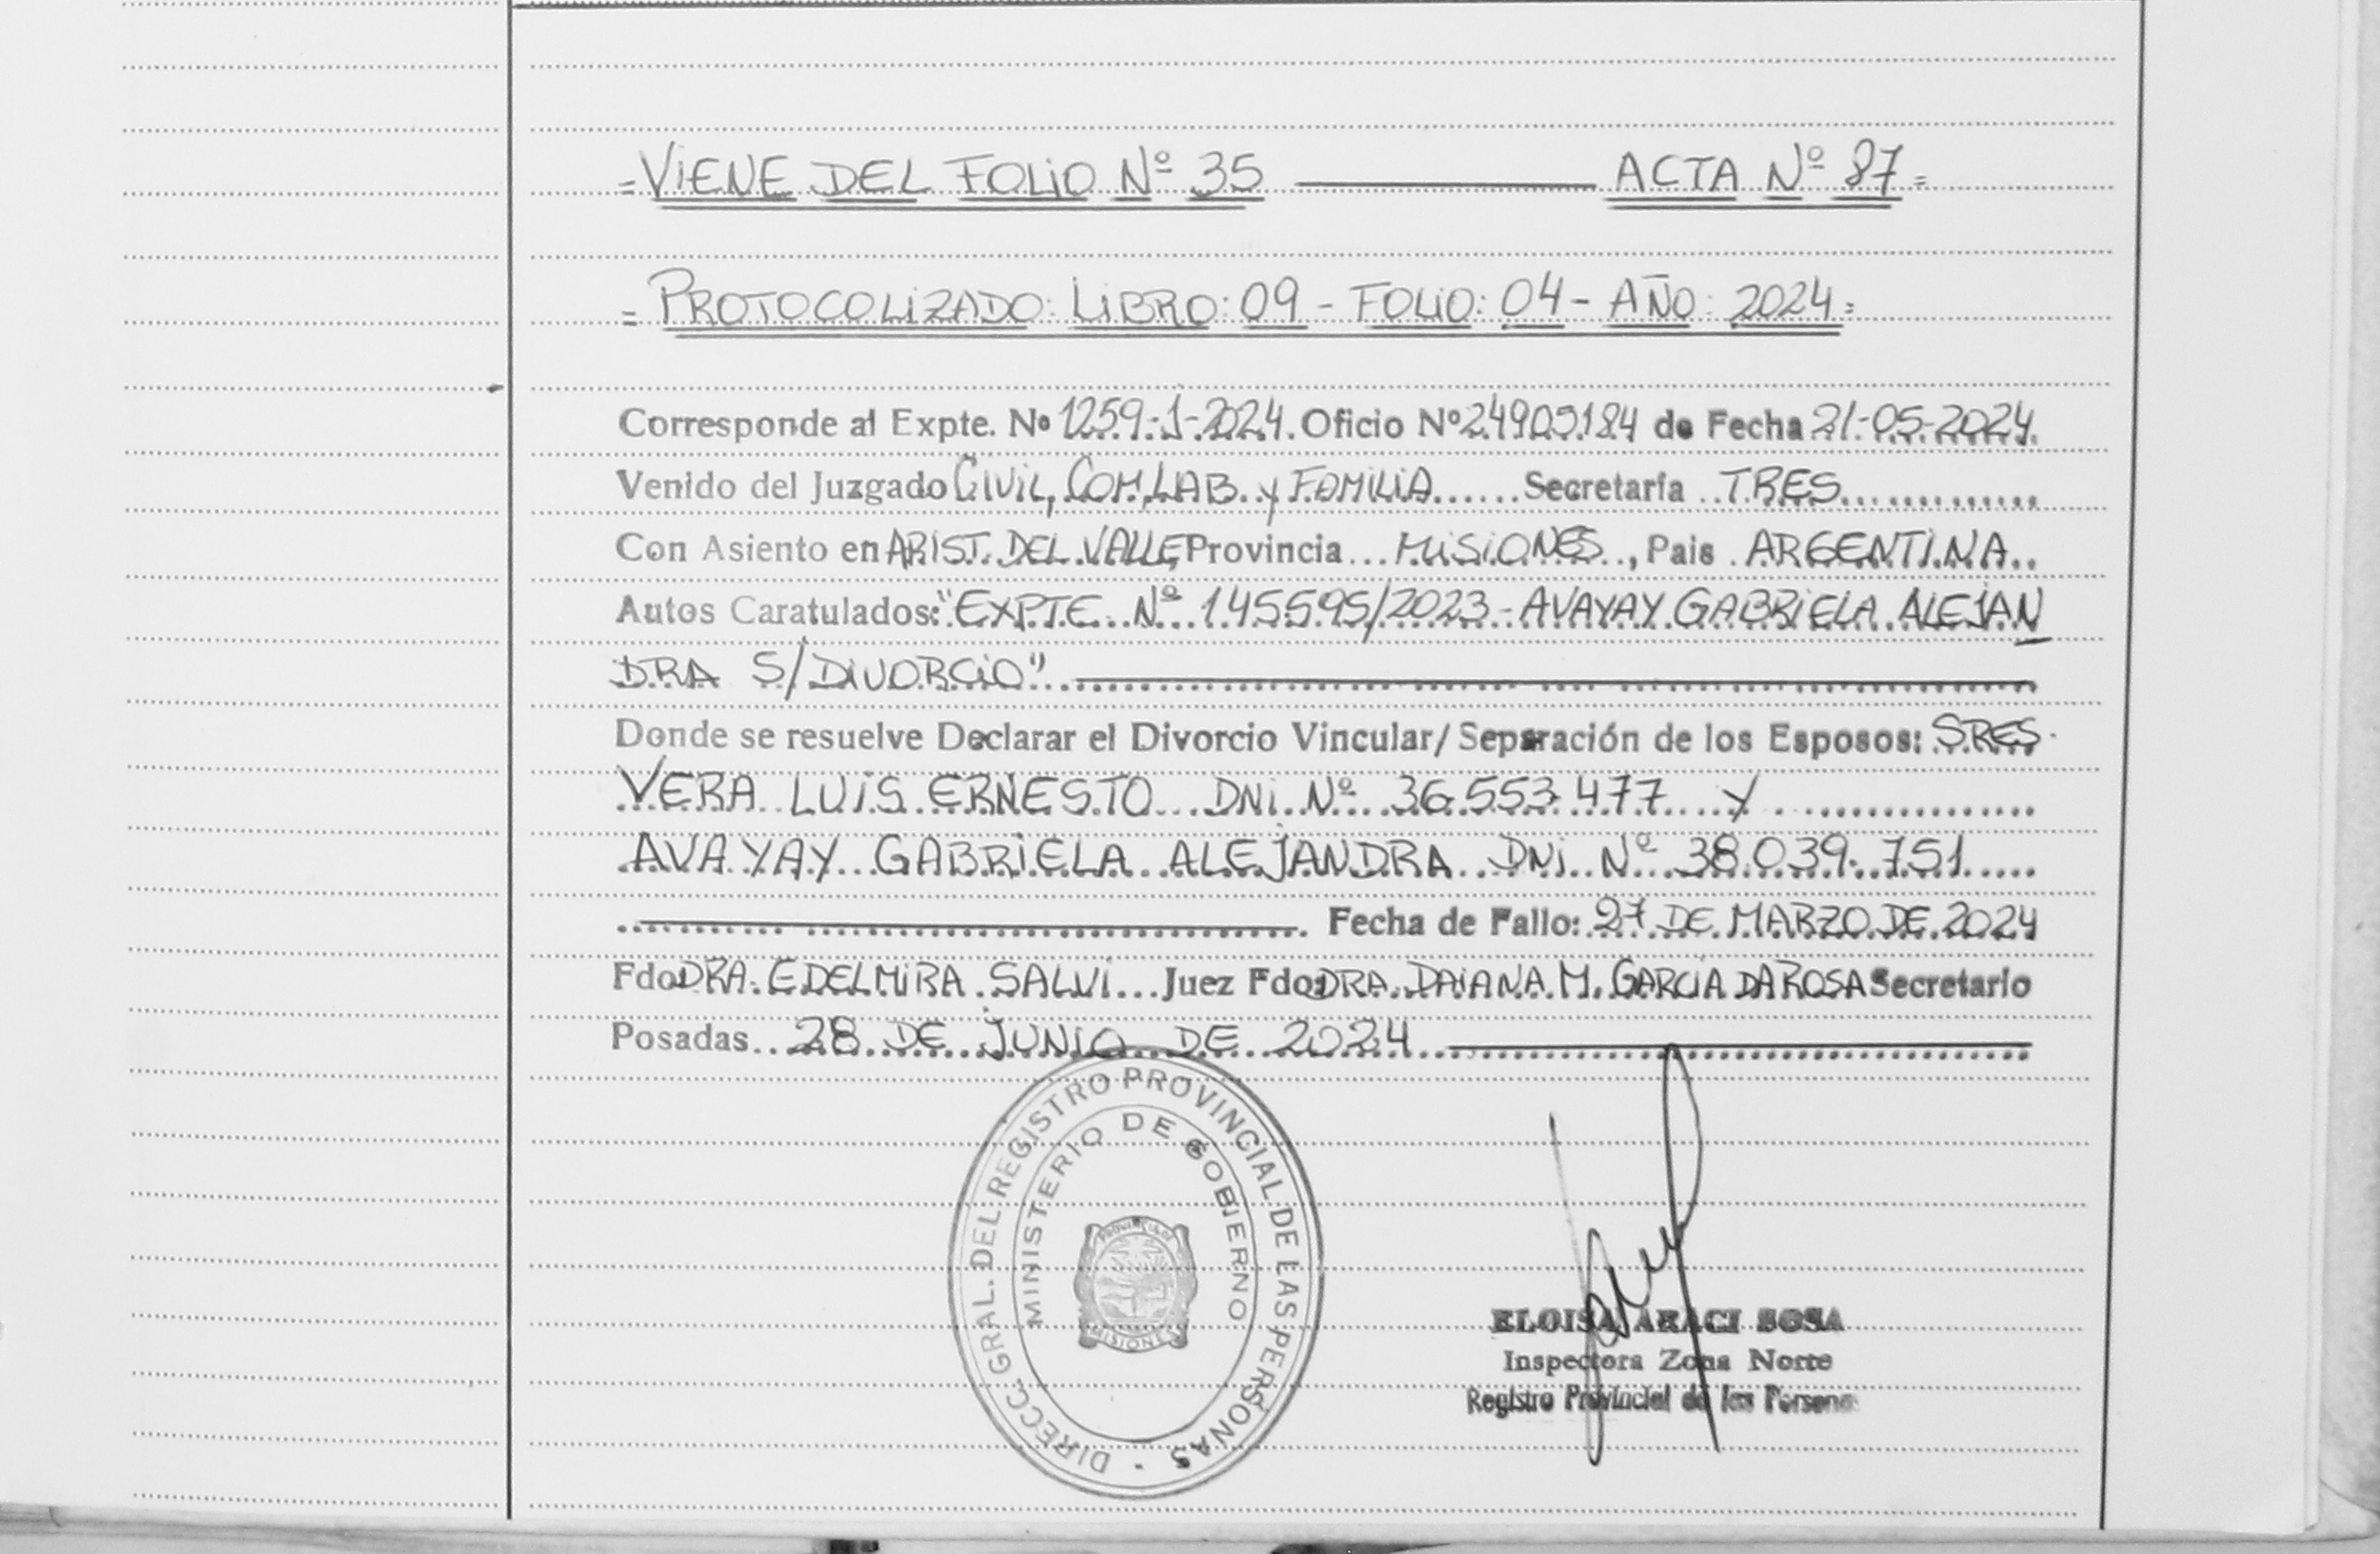 =VIENE DEL FOLIO Nº 35 ———— ACTA Nº 87=
=PROTOCOLIZADO: LIBRO: 09 - FOLIO: 04 - AÑO: 2024=
Corresponde al Expte. Nº 1259-J-2024. Oficio Nº 24905184 de Fecha 21-05-2024
Venido del Juzgado CIVIL, COM, LAB. y FAMILIA...... Secretaría ..TRES..............
Con Asiento en ARIST. DEL VALLE, Provincia ... MISIONES .., Pais . ARGENTINA..
Autos Caratulados: "EXPTE. Nº 145595/2023 - AVAYAY GABRIELA ALEJAN
DRA S/DIVORCIO"
Donde se resuelve Declarar el Divorcio Vincular/ Separación de los Esposos: SRES.
VERA LUIS ERNESTO DNI Nº 36.553.477 Y
AVAYAY GABRIELA ALEJANDRA DNI Nº 38.039.751
Fecha de Fallo: 27 DE MARZO DE 2024
Fdo DRA. EDELMIRA SALVI ... Juez Fdo: DRA. DAIANA M. GARCIA DA ROSA Secretario
Posadas 28 DE JUNIO DE 2024
DIRECC. GRAL. DEL REGISTRO PROVINCIAL DE LAS PERSONAS -
MINISTERIO DE GOBIERNO
PROVINCIA DE
MISIONES
ELOISA ARACI SOSA
Inspectora Zona Norte
Registro Provincial de las Persona